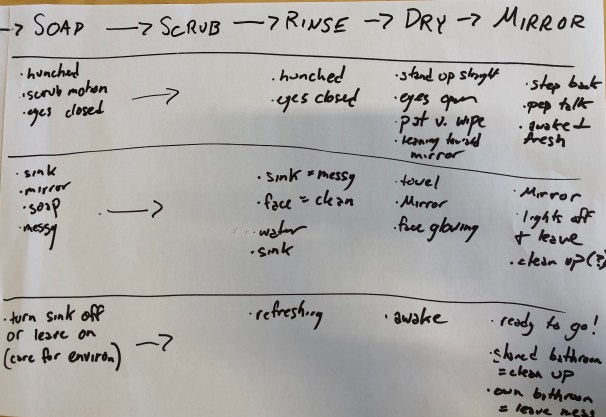 → SOAP → SCRUB → RINSE → DRY → MIRROR
· hunched
· scrub motion
· eyes closed
→
· hunched
· eyes closed
· stand up straight
· eyes open
· pat v. wipe
· leaning toward
mirror
· step back
· pep talk
· awake +
fresh
· sink
· mirror
· soap
· messy
→
· sink = messy
· face = clean
· water
· sink
· towel
· Mirror
· face glowing
· Mirror
· lights off
+ leave
· clean up (?)
· turn sink off
or leave on
(care for environ)
→
· refreshing
· awake
· ready to go!
· shared bathroom
= clean up
· own bathroom
= leave mess